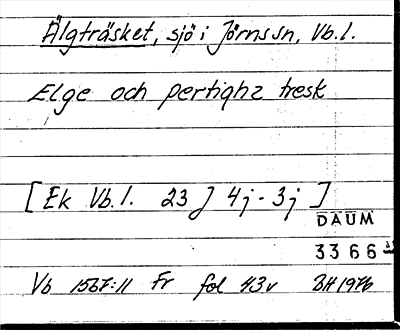 Älgträsket, sjö i Jörns sn, Vb. l.
Elge och pertighz tresk
[Ek Vb. l. 23 J 4j - 3j]
DAUM
3366
Vb 1567:11 Fr fol 43v BH 1976